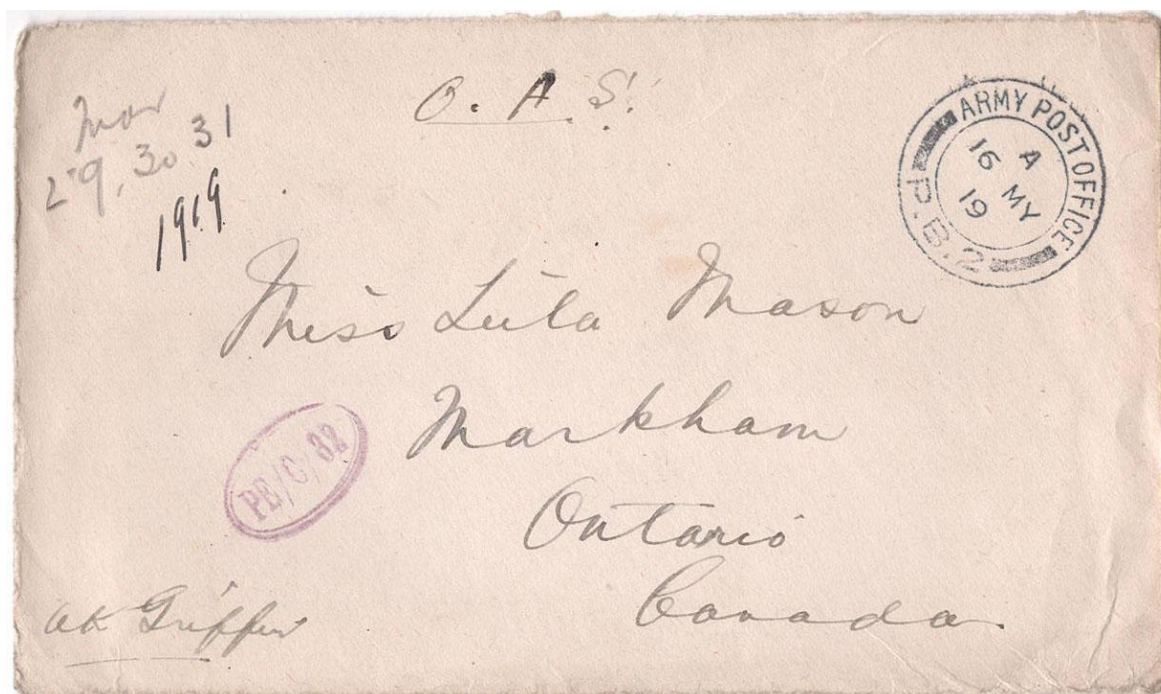 O. A. S.
Mar
29, 30 31
1919
ARMY POST OFFICE
A
16 MY
19
P.B.2
Miss Leila Mason
Markham
Ontario
Canada
PE/C/02
AK Griffin